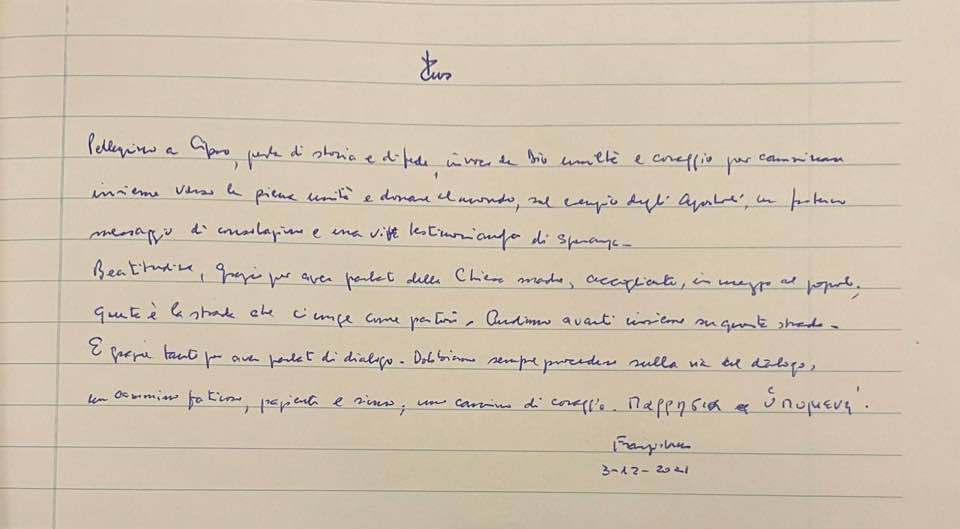 Pellegrino a Cipro, perla di storia e di fede, invoco da Dio umiltà e coraggio per camminare
insieme verso la piena unità e donare al mondo, sul esempio degli Apostoli, un fraterno
messaggio di consolazione e una viva testimonianza di speranza.
Beatitudine, grazie per aver parlato della Chiesa madre, accogliente, in mezzo al popolo;
questa è la strada che ci unge come pastori. Andiamo avanti insieme su questa strada.
E grazie tanto per aver parlato di dialogo. Dobbiamo sempre procedere sulla via del dialogo,
un cammino faticoso, paziente e sicuro, un cammino di coraggio. Παρρησια e ὑπομενή.
Franciscus
3-12-2021